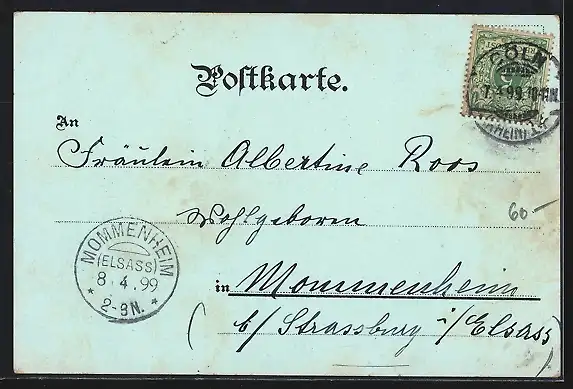 Postkarte.
CÖLN
7.4.99.
(RHEIN)
An
Fräulein Albertine Roos
Wohlgeboren
60-
in Mommenheim
(b/ Strassburg i/Elsass)
MOMMENHEIM
(ELSASS)
8.4.99
* 2-3N. *